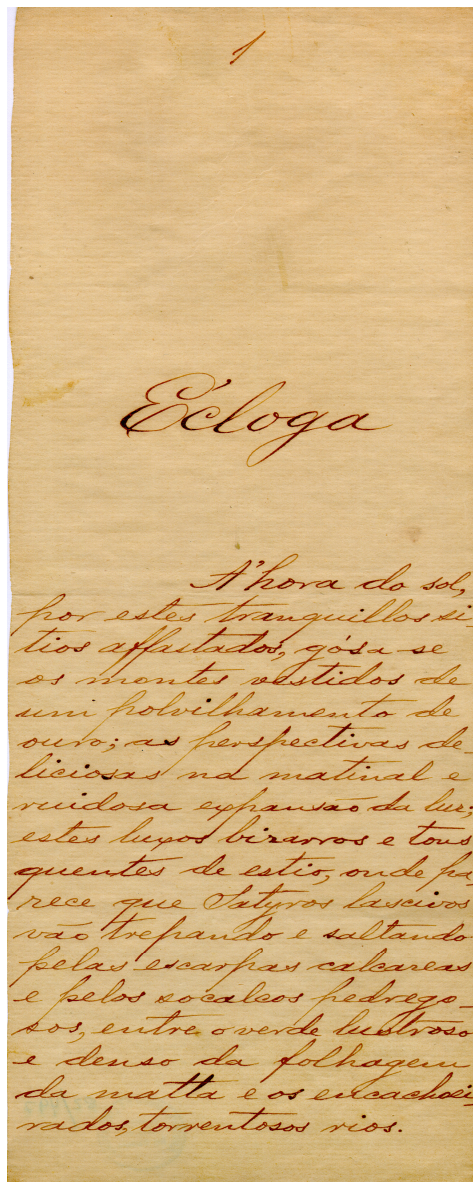 1
Écloga
A' hora do sol,
por estes tranquillos si-
tios affastados, gósa-se
os montes vestidos de
um polvilhamento de
ouro; as perspectivas de-
liciosas na matinal e
ruidosa expansão da luz;
estes luxos bizarros e tons
quentes de estio, onde pa
rece que Satyros lascivos
vão trepando e saltando
pelas escarpas calcareas
e pelos socalcos pedrego-
sos, entre o verde lustroso
e denso da folhagem
da matta e os encachoei-
rados, torrentosos rios.